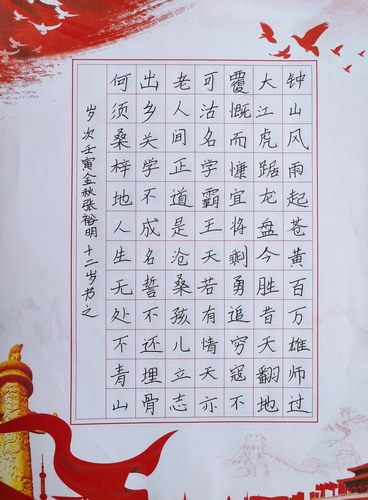 钟山风雨起苍黄百万雄师过
大江虎踞龙盘今胜昔天翻地
覆慨而慷宜将剩勇追穷寇不
可沽名学霸王天若有情天亦
老人间正道是沧桑孩儿立志
出乡关学不成名誓不还埋骨
何须桑梓地人生无处不青山
岁次壬寅金秋张裕明十二岁书之